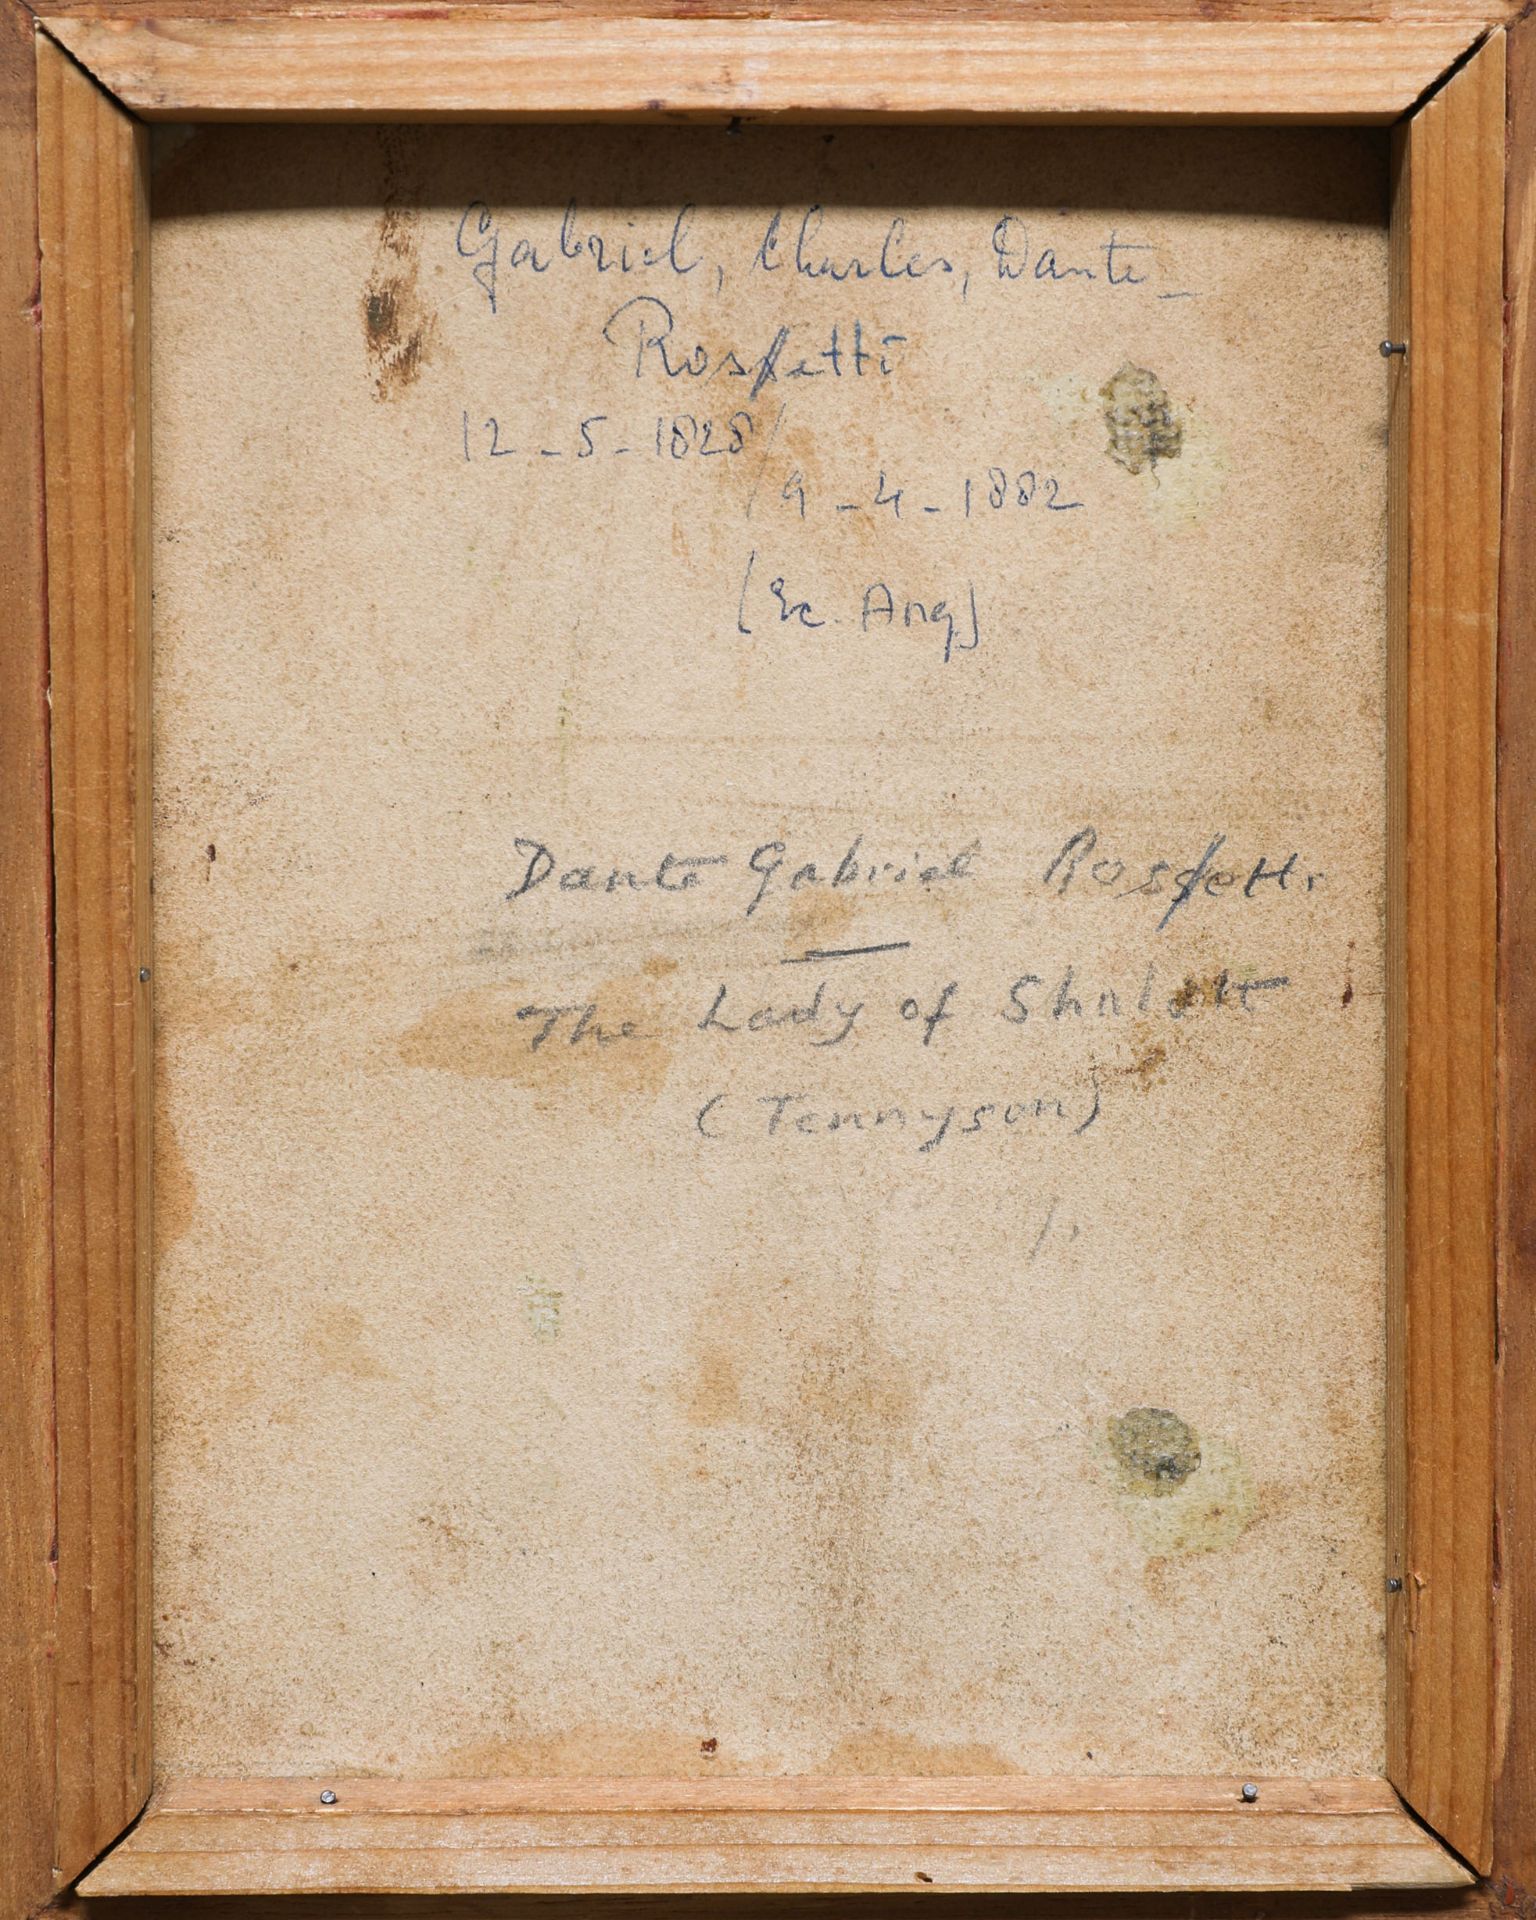 Gabriel, Charles, Dante_
Rossetti
12-5-1828/
9-4-1882
(Ec. Ang)
Dante Gabriel Rossetti
—
The Lady of Shalott
(Tennyson)